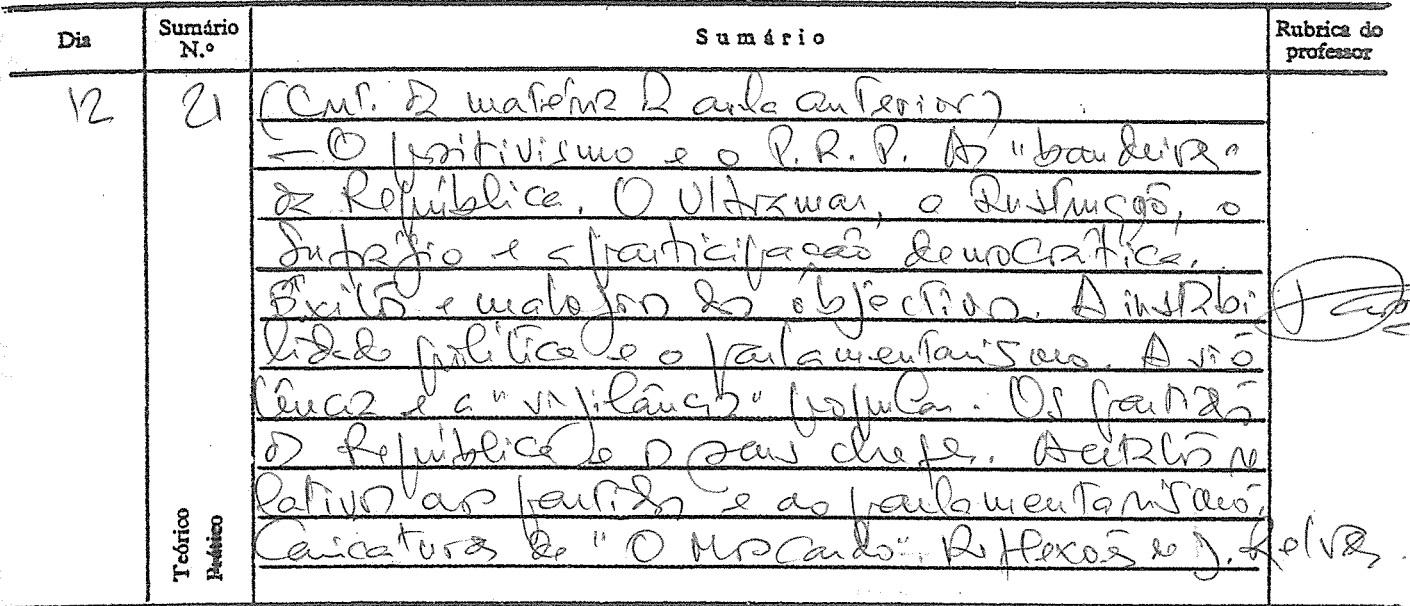 Dia Sumário N.º Sumário Rubrica do professor
12 21 (Cont. da matéria da aula anterior)
- O positivismo e o P. R. P. As "bandeiras"
da República. O Ultramar, a Instrução, o
Sufrágio e a participação democrática.
Êxitos e malogros dos objectivos. A instabi
lidade política e o parlamentarismo. A vio
lência e a "vigilância" popular. Os partidos
da República e os seus chefes. re
lativos aos partidos e ao parlamentarismo.
Caricaturas de "O Moscardo". Reflexões de J. Relvas.
Teórico
Prático